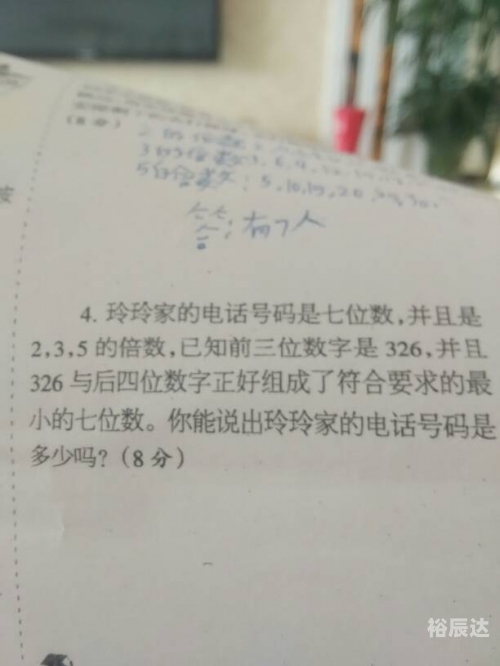 (8分)
5的倍数:5,10,15,20
答:有7人
4. 玲玲家的电话号码是七位数,并且是
2,3,5 的倍数,已知前三位数字是 326,并且
326 与后四位数字正好组成了符合要求的最
小的七位数。你能说出玲玲家的电话号码是
多少吗?(8 分)
裕辰达